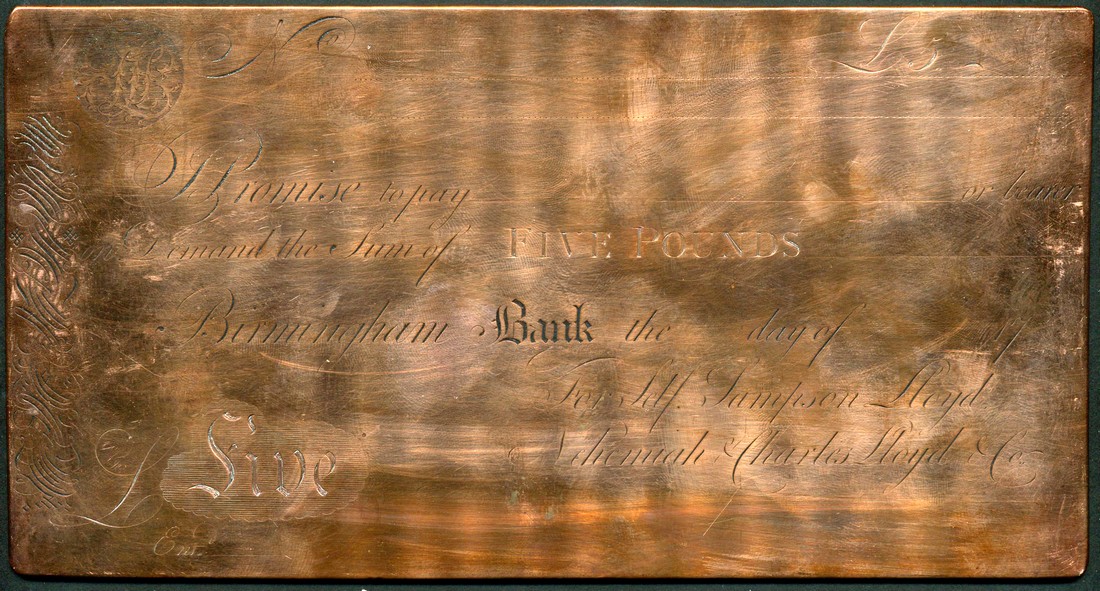 No £5
I Promise to pay or bearer
on Demand the Sum of FIVE POUNDS
Birmingham Bank the day of 17
For Self Sampson Lloyd
Nehemiah & Charles Lloyd & Co.
£ Five
Ent.